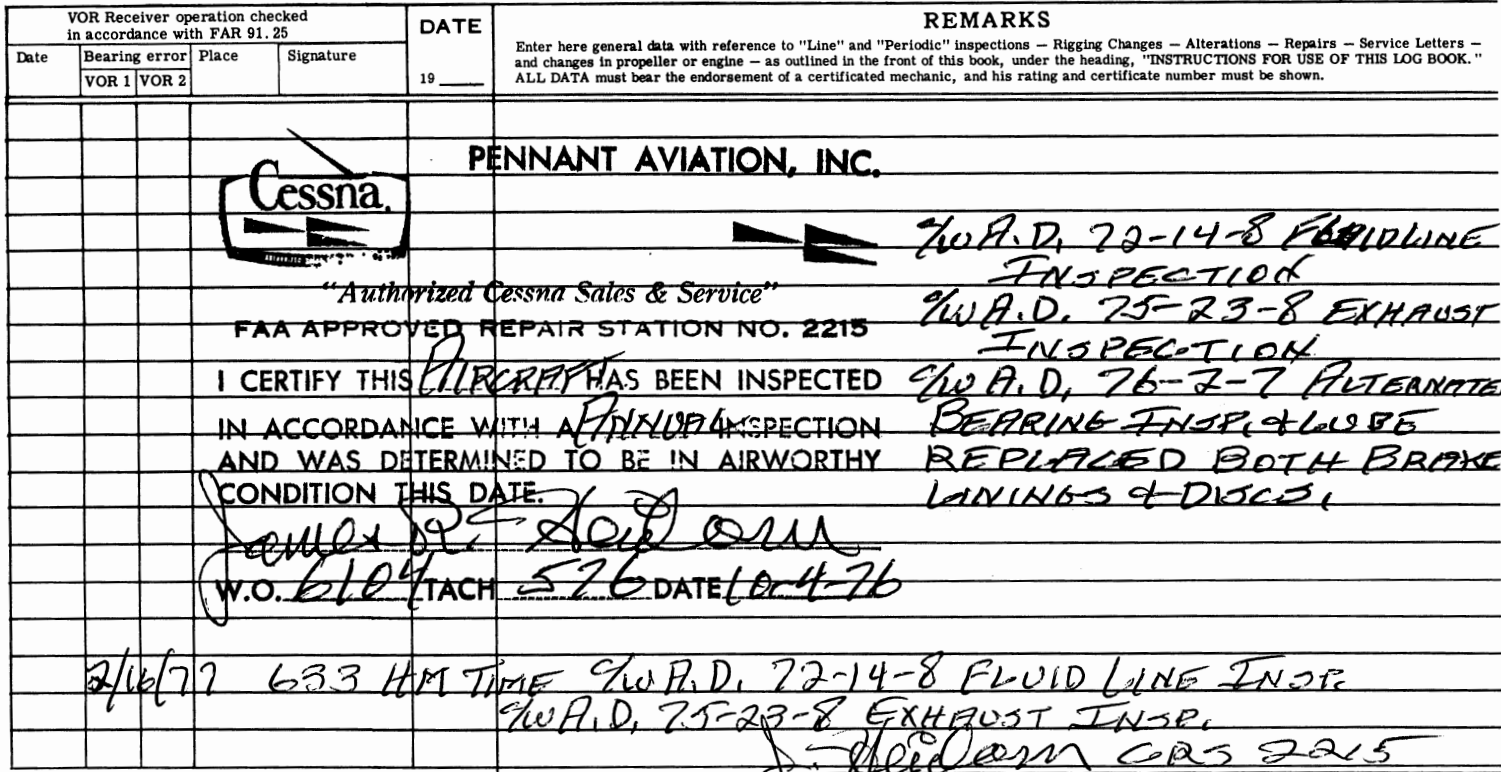 VOR Receiver operation checked
in accordance with FAR 91.25
Date
Bearing error
VOR 1 VOR 2
Place
Signature
DATE
19
REMARKS
Enter here general data with reference to "Line" and "Periodic" inspections — Rigging Changes — Alterations — Repairs — Service Letters —
and changes in propeller or engine — as outlined in the front of this book, under the heading, "INSTRUCTIONS FOR USE OF THIS LOG BOOK."
ALL DATA must bear the endorsement of a certificated mechanic, and his rating and certificate number must be shown.
Cessna.
PENNANT AVIATION, INC.
"Authorized Cessna Sales & Service"
FAA APPROVED REPAIR STATION NO. 2215
I CERTIFY THIS AIRCRAFT HAS BEEN INSPECTED
IN ACCORDANCE WITH A ANNUAL INSPECTION
AND WAS DETERMINED TO BE IN AIRWORTHY
CONDITION THIS DATE.
James R.
W.O. 6104 TACH 576 DATE 10-4-76
C/W A.D. 72-14-8 FLUIDLINE
INSPECTION
C/W A.D. 75-23-8 EXHAUST
INSPECTION
C/W A.D. 76-2-7 ALTERNATE
BEARING INSP. & LUBE
REPLACED BOTH BRAKE
LININGS & DISCS.
2/16/77 633 HM TIME C/W A.D. 72-14-8 FLUID LINE INSP.
C/W A.D. 75-23-8 EXHAUST INSP.
J. Heidorn CRS 2215